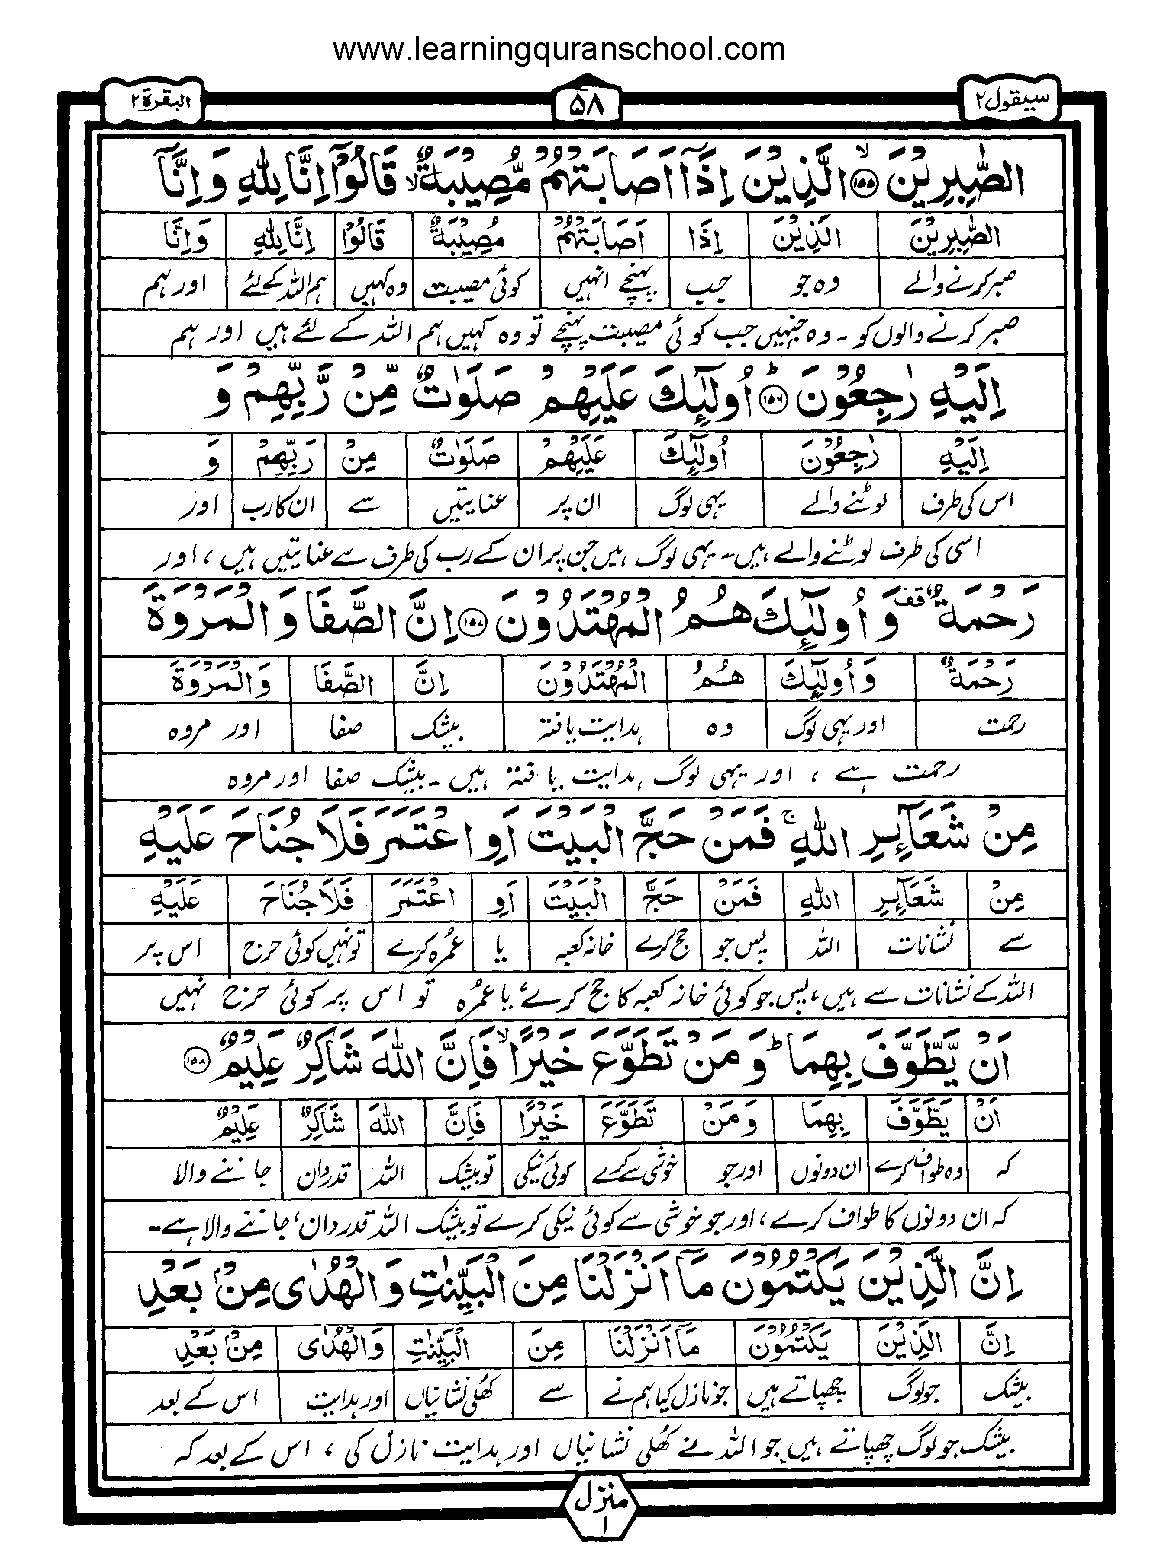 www.learningquranschool.com
سیقول ۲ ۵۸ البقرة ۲
الصّٰبِرِیْنَ ۙ۝۱۵۵ الَّذِیْنَ اِذَاۤ اَصَابَتْهُمْ مُّصِیْبَةٌ ۙ قَالُوْۤا اِنَّا لِلّٰهِ وَ اِنَّاۤ
الصّٰبِرِیْنَ الَّذِیْنَ اِذَا اَصَابَتْهُمْ مُصِیْبَةٌ قَالُوْا اِنَّا لِلّٰهِ وَ اِنَّا
صبر کرنے والے وہ جو جب پہنچے انہیں کوئی مصیبت وہ کہیں ہم اللہ کے لئے اور ہم
صبر کرنے والوں کو ۔ وہ جنہیں جب کوئی مصیبت پہنچے تو وہ کہیں ہم اللہ کے لئے ہیں اور ہم
اِلَیْهِ رٰجِعُوْنَ ؕ۝۱۵۶ اُولٰٓىِٕكَ عَلَیْهِمْ صَلَوٰتٌ مِّنْ رَّبِّهِمْ وَ
اِلَیْهِ رٰجِعُوْنَ اُولٰٓىِٕكَ عَلَیْهِمْ صَلَوٰتٌ مِنْ رَبِّهِمْ وَ
اس کی طرف لوٹنے والے یہی لوگ ان پر عنایتیں سے ان کا رب اور
اسی کی طرف لوٹنے والے ہیں ۔ یہی لوگ ہیں جن پر ان کے رب کی طرف سے عنایتیں ہیں ، اور
رَحْمَةٌ ۫ وَ اُولٰٓىِٕكَ هُمُ الْمُهْتَدُوْنَ ۝۱۵۷ اِنَّ الصَّفَا وَ الْمَرْوَةَ
رَحْمَةٌ وَ اُولٰٓىِٕكَ هُمُ الْمُهْتَدُوْنَ اِنَّ الصَّفَا وَ الْمَرْوَةَ
رحمت اور یہی لوگ وہ ہدایت یافتہ بیشک صفا اور مروہ
رحمت ہے ، اور یہی لوگ ہدایت یافتہ ہیں ۔ بیشک صفا اور مروہ
مِنْ شَعَآىِٕرِ اللّٰهِ ۚ فَمَنْ حَجَّ الْبَیْتَ اَوِ اعْتَمَرَ فَلَا جُنَاحَ عَلَیْهِ
مِنْ شَعَآىِٕرِ اللّٰهِ فَمَنْ حَجَّ الْبَیْتَ اَوِ اعْتَمَرَ فَلَا جُنَاحَ عَلَیْهِ
سے نشانات اللہ پس جو حج کرے خانہ کعبہ یا عمرہ کرے تو نہیں کوئی حرج اس پر
اللہ کے نشانات سے ہیں ، پس جو کوئی خانہ کعبہ کا حج کرے یا عمرہ تو اس پر کوئی حرج نہیں
اَنْ یَّطَّوَّفَ بِهِمَا ؕ وَ مَنْ تَطَوَّعَ خَیْرًا ۙ فَاِنَّ اللّٰهَ شَاكِرٌ عَلِیْمٌ ۝۱۵۸
اَنْ یَطَّوَّفَ بِهِمَا وَ مَنْ تَطَوَّعَ خَیْرًا فَاِنَّ اللّٰهَ شَاكِرٌ عَلِیْمٌ
کہ وہ طواف کرے ان دونوں اور جو خوشی سے کرے کوئی نیکی تو بیشک اللہ قدردان جاننے والا
کہ ان دونوں کا طواف کرے ، اور جو خوشی سے کوئی نیکی کرے تو بیشک اللہ قدردان ، جاننے والا ہے ۔
اِنَّ الَّذِیْنَ یَكْتُمُوْنَ مَاۤ اَنْزَلْنَا مِنَ الْبَیِّنٰتِ وَ الْهُدٰى مِنْۢ بَعْدِ
اِنَّ الَّذِیْنَ یَكْتُمُوْنَ مَاۤ اَنْزَلْنَا مِنَ الْبَیِّنٰتِ وَ الْهُدٰى مِنْۢ بَعْدِ
بیشک جو لوگ چھپاتے ہیں جو نازل کیا ہم نے سے کھلی نشانیاں اور ہدایت اس کے بعد
بیشک جو لوگ چھپاتے ہیں جو اللہ نے کھلی نشانیاں اور ہدایت نازل کی ، اس کے بعد کہ
منزل ۱